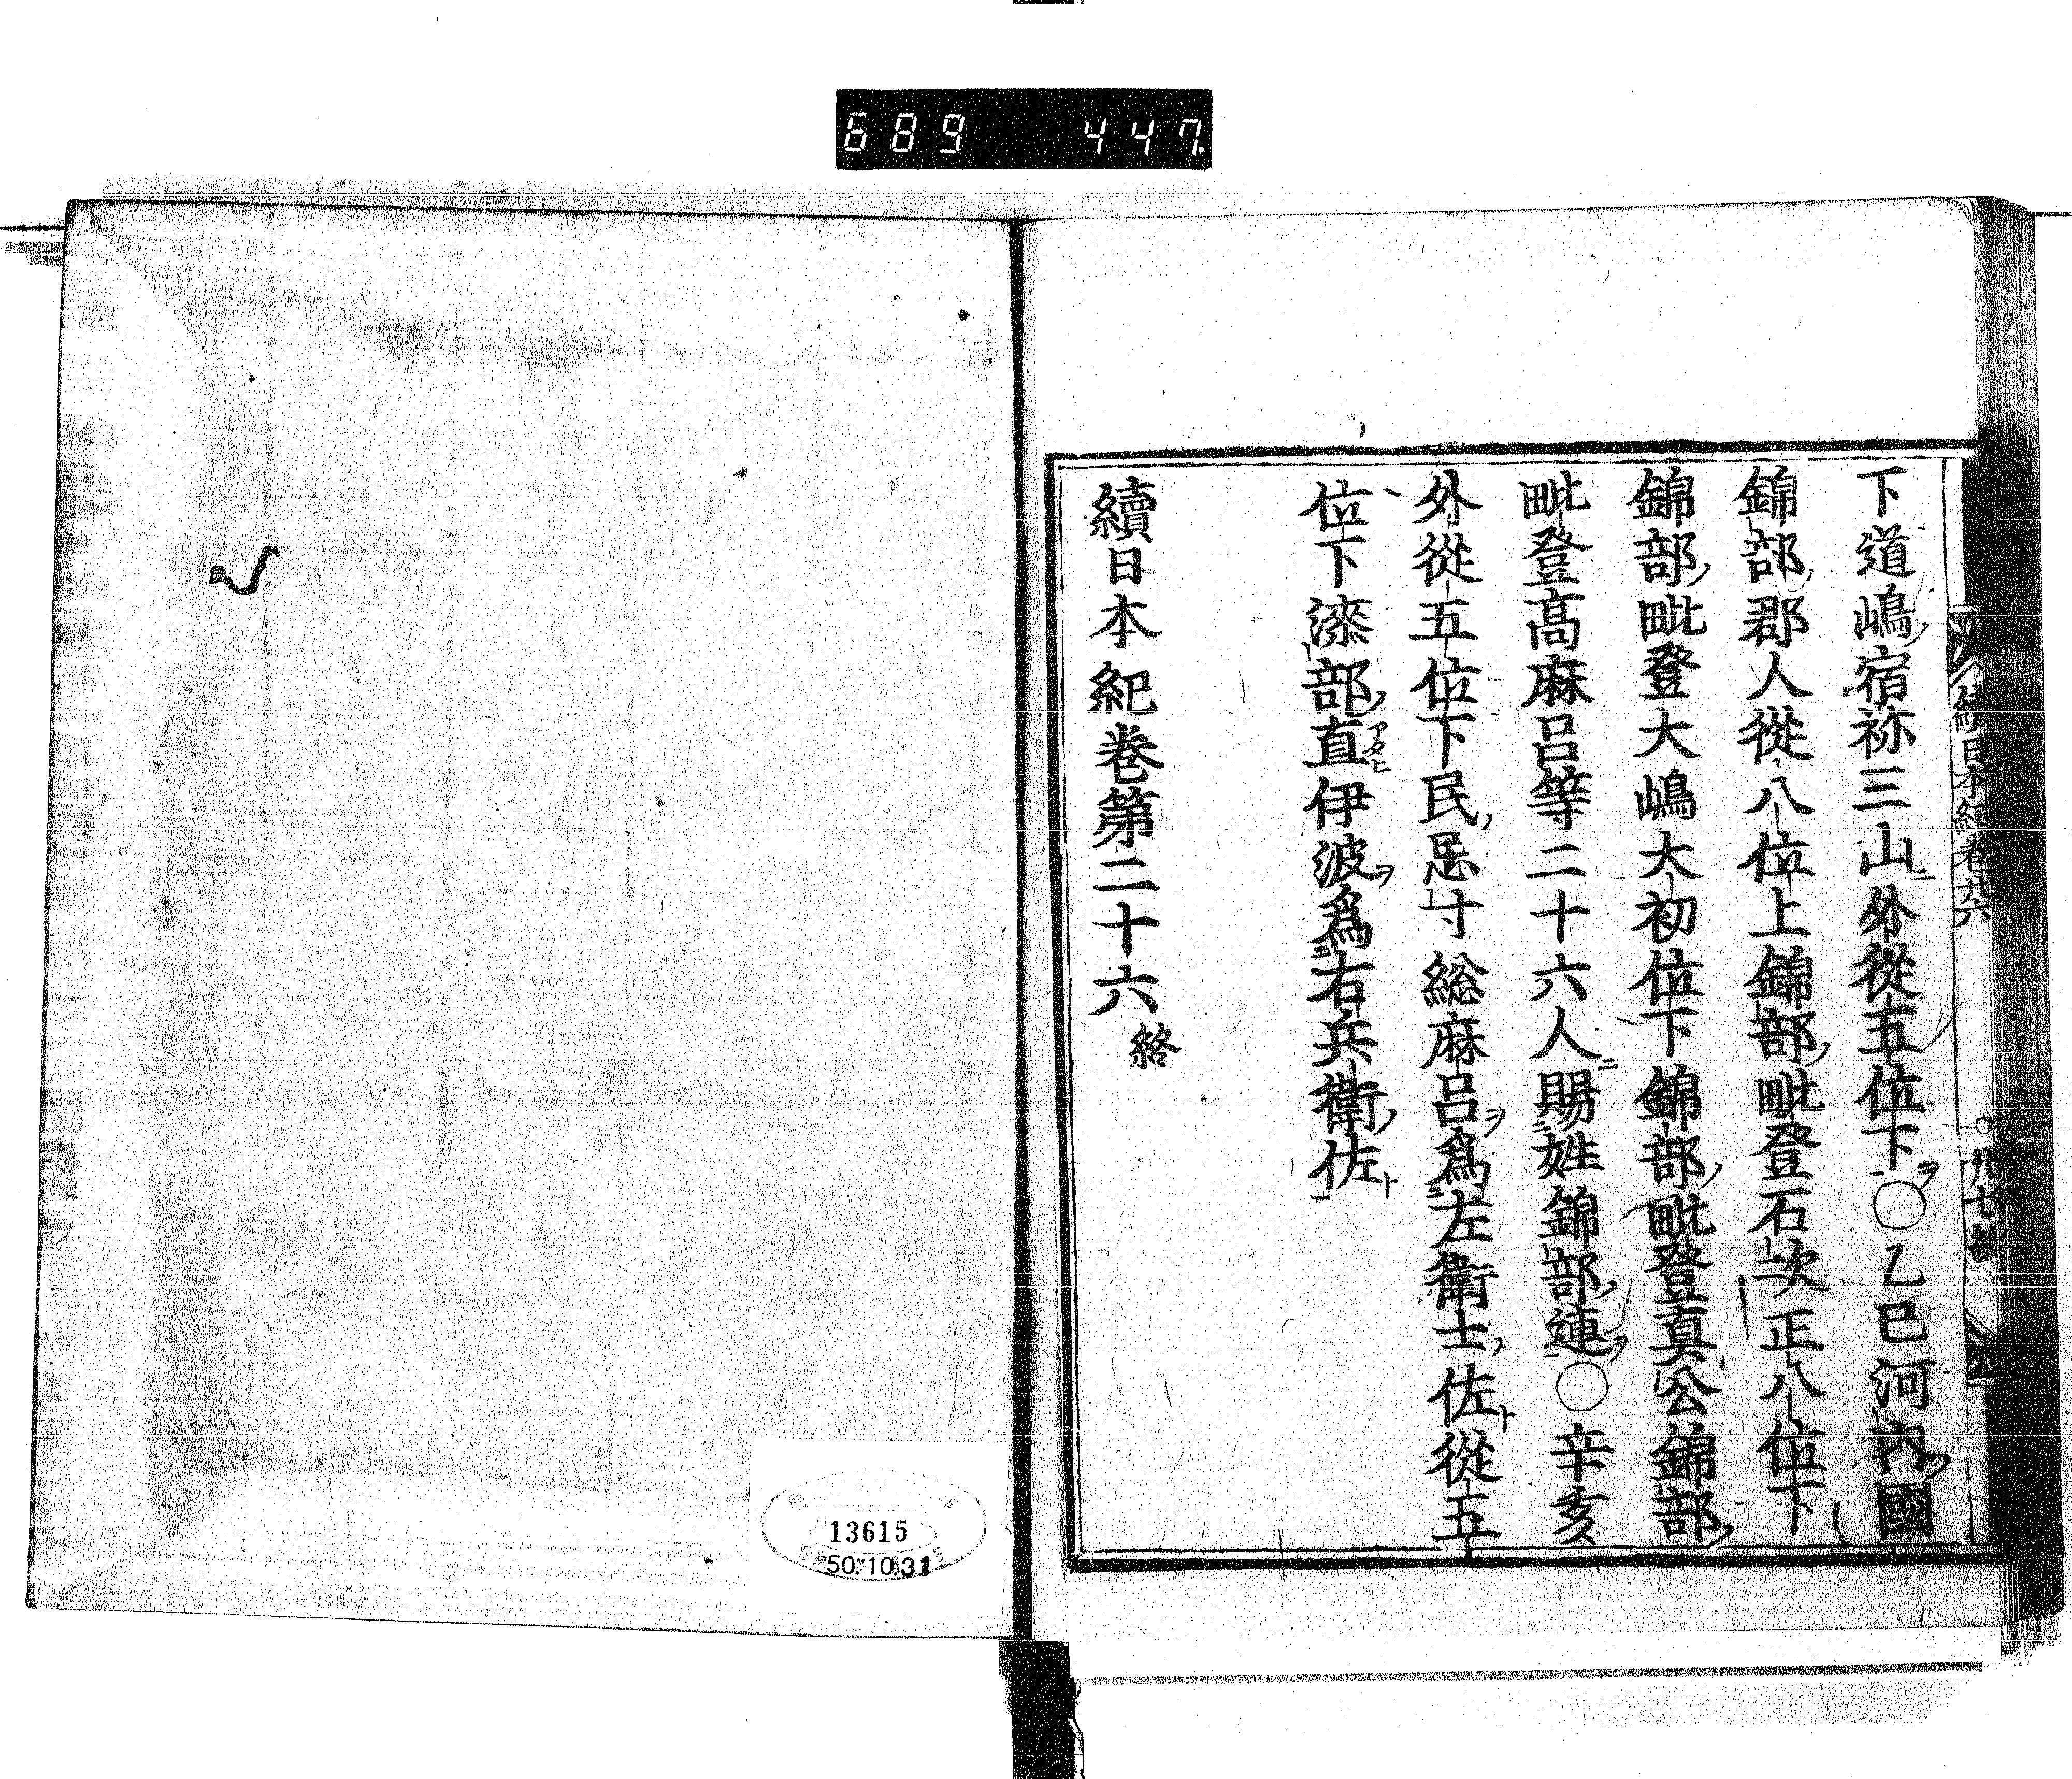 689 447.
下道嶋宿祢三山外從五位下○乙巳河内國
錦部郡人從八位上錦部毗登石次正八位下
錦部毗登大嶋大初位下錦部毗登真公錦部
毗登高麻呂等二十六人賜姓錦部連○辛亥
外從五位下民忌寸総麻呂爲左衛士佐從五
位下漆部直伊波爲右兵衛佐
アタヒ
續日本紀巻第二十六終
續日本紀巻廿六
13615
50.10.31